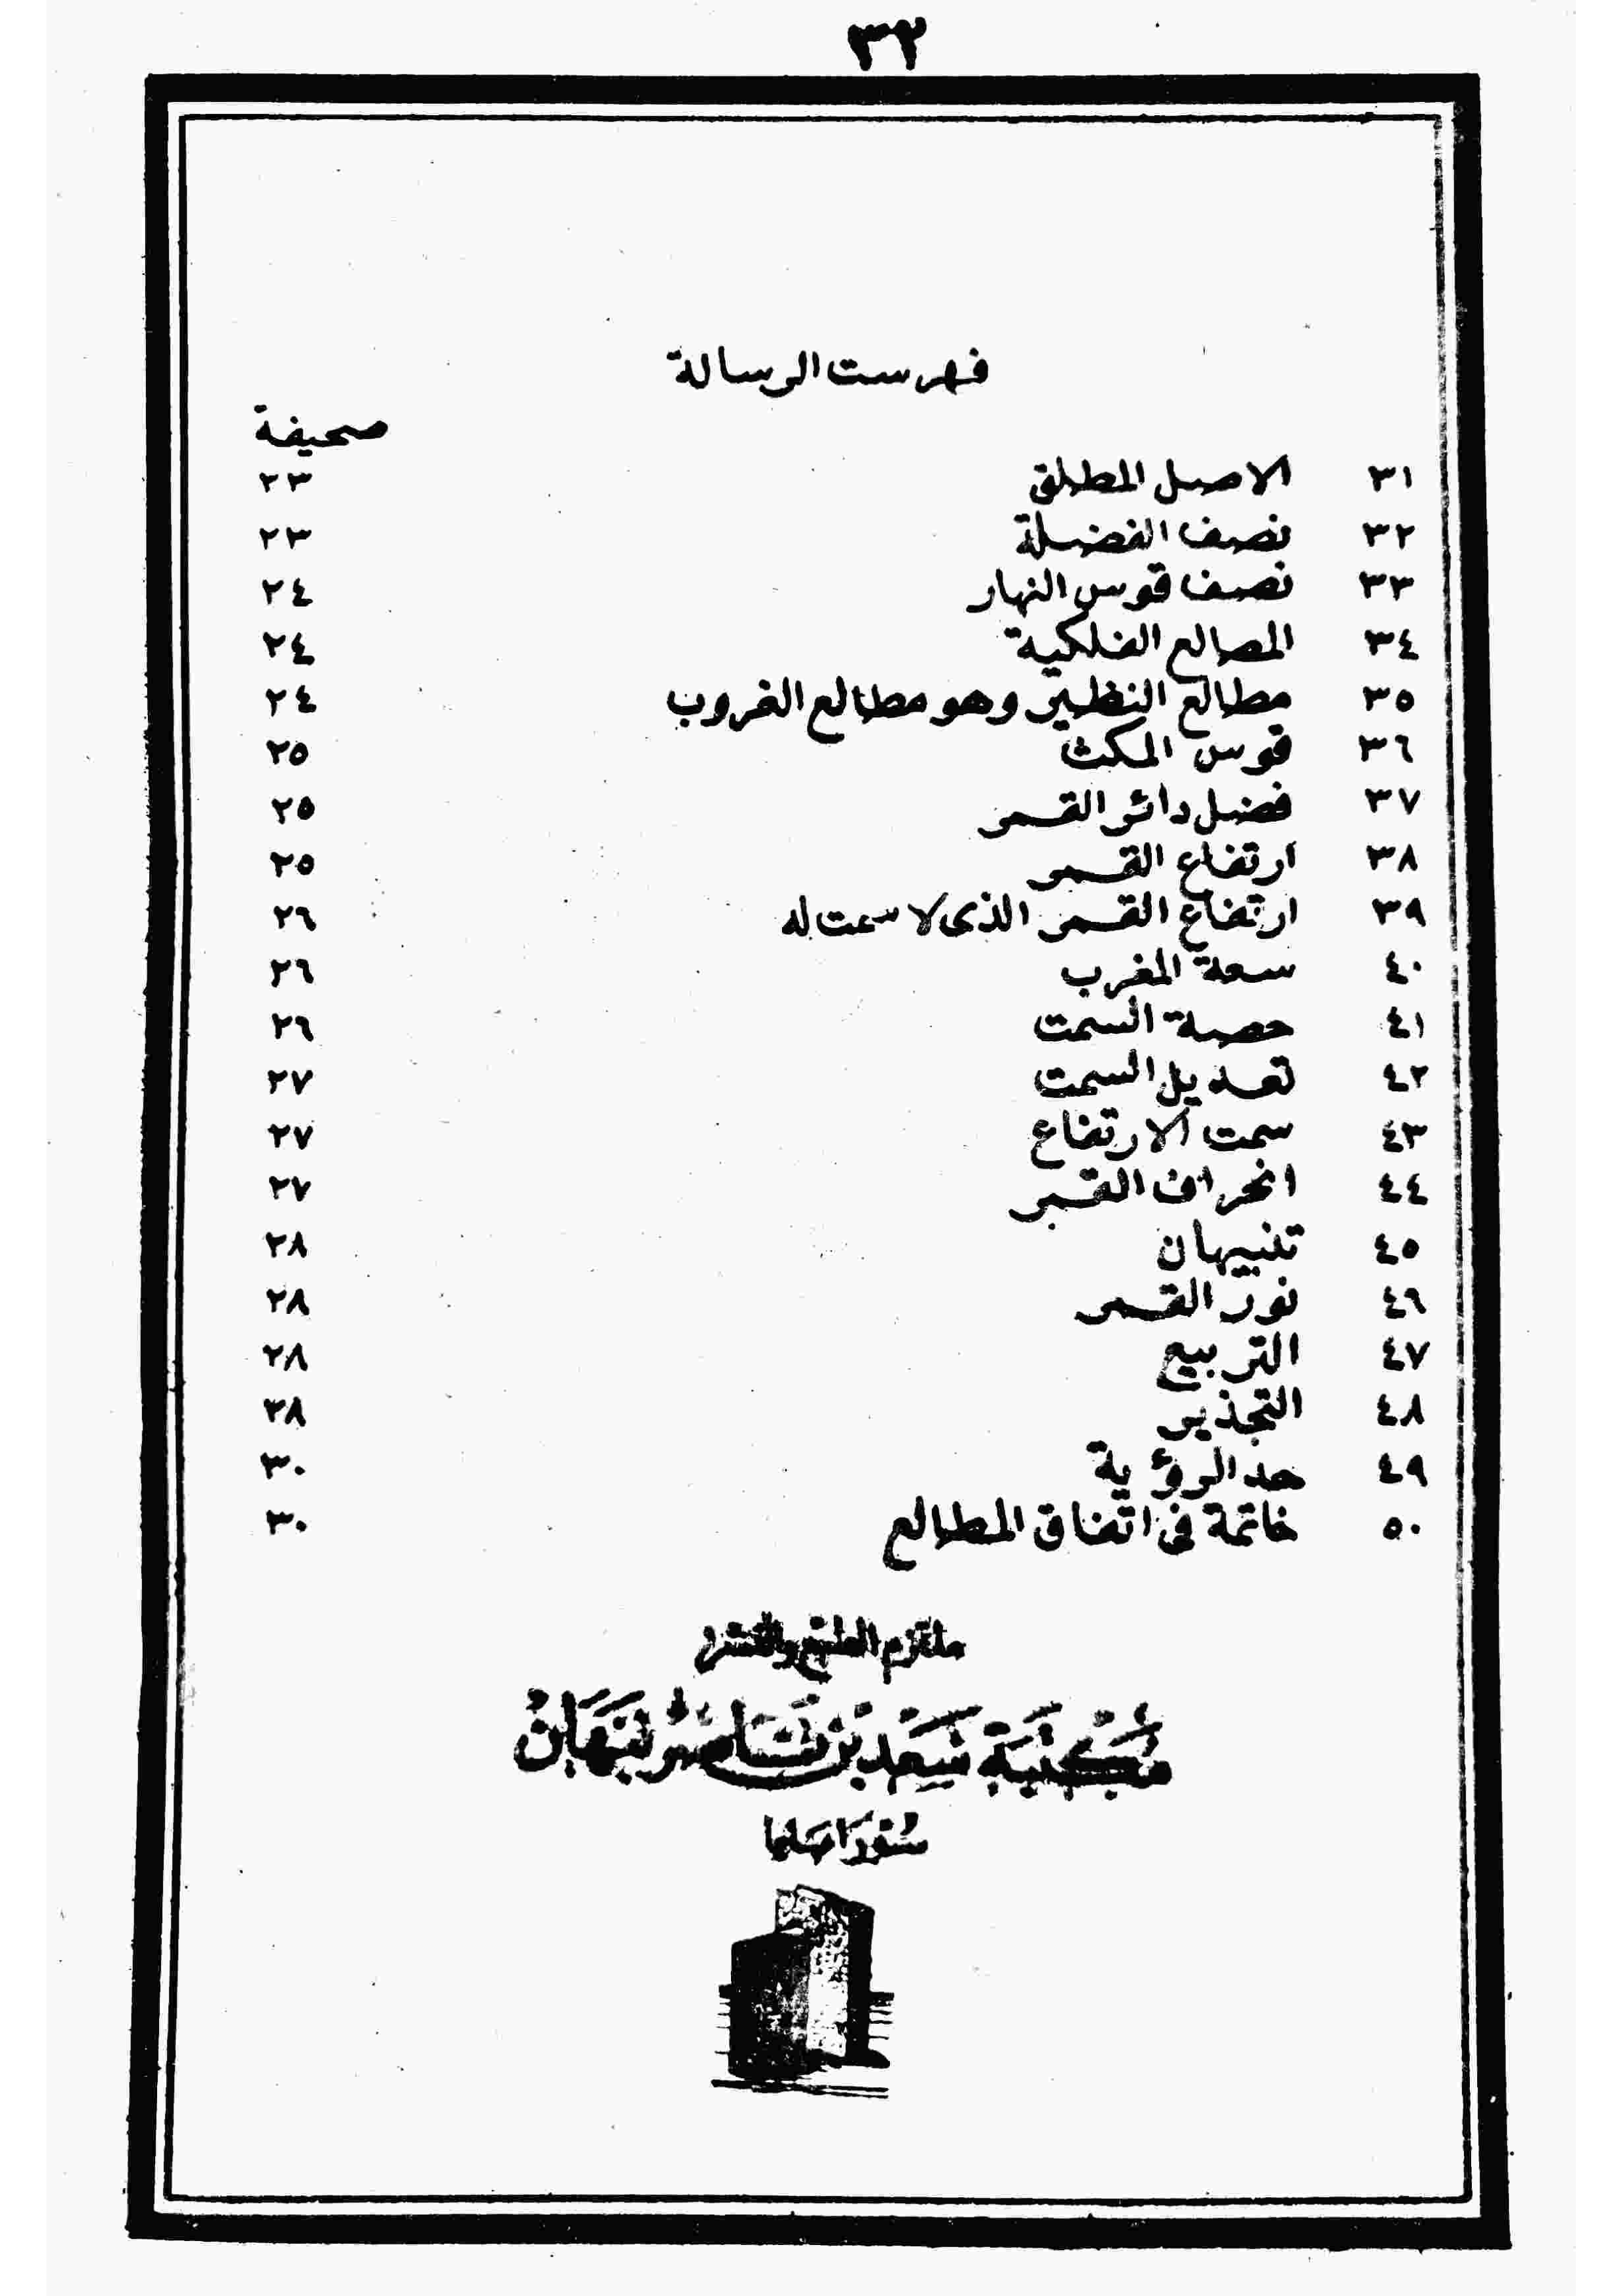 ٣٢
فهرست الرسالة
صحيفة
٣١ الاصل المطلق ٢٣
٣٢ نصف الفضلة ٢٣
٣٣ نصف قوس النهار ٢٤
٣٤ المصالع الفلكية ٢٤
٣٥ مطالع النظير وهو مطالع الغروب ٢٤
٣٦ قوس المكث ٢٥
٣٧ فضل دائر القمر ٢٥
٣٨ ارتفاع القمر ٢٥
٣٩ ارتفاع القمر الذى لا سمت له ٢٦
٤٠ سعة المغرب ٢٦
٤١ حصة السمت ٢٦
٤٢ تعديل السمت ٢٧
٤٣ سمت الارتفاع ٢٧
٤٤ انحراف القمر ٢٧
٤٥ تنبيهان ٢٨
٤٦ نور القمر ٢٨
٤٧ التربيع ٢٨
٤٨ التجذير ٢٨
٤٩ حد الرؤية ٣٠
٥٠ خاتمة فى اتفاق المطالع ٣٠
ملتزم الطبع والنشر
مكتبة سعد بن ناصر نبهان
سورابايا